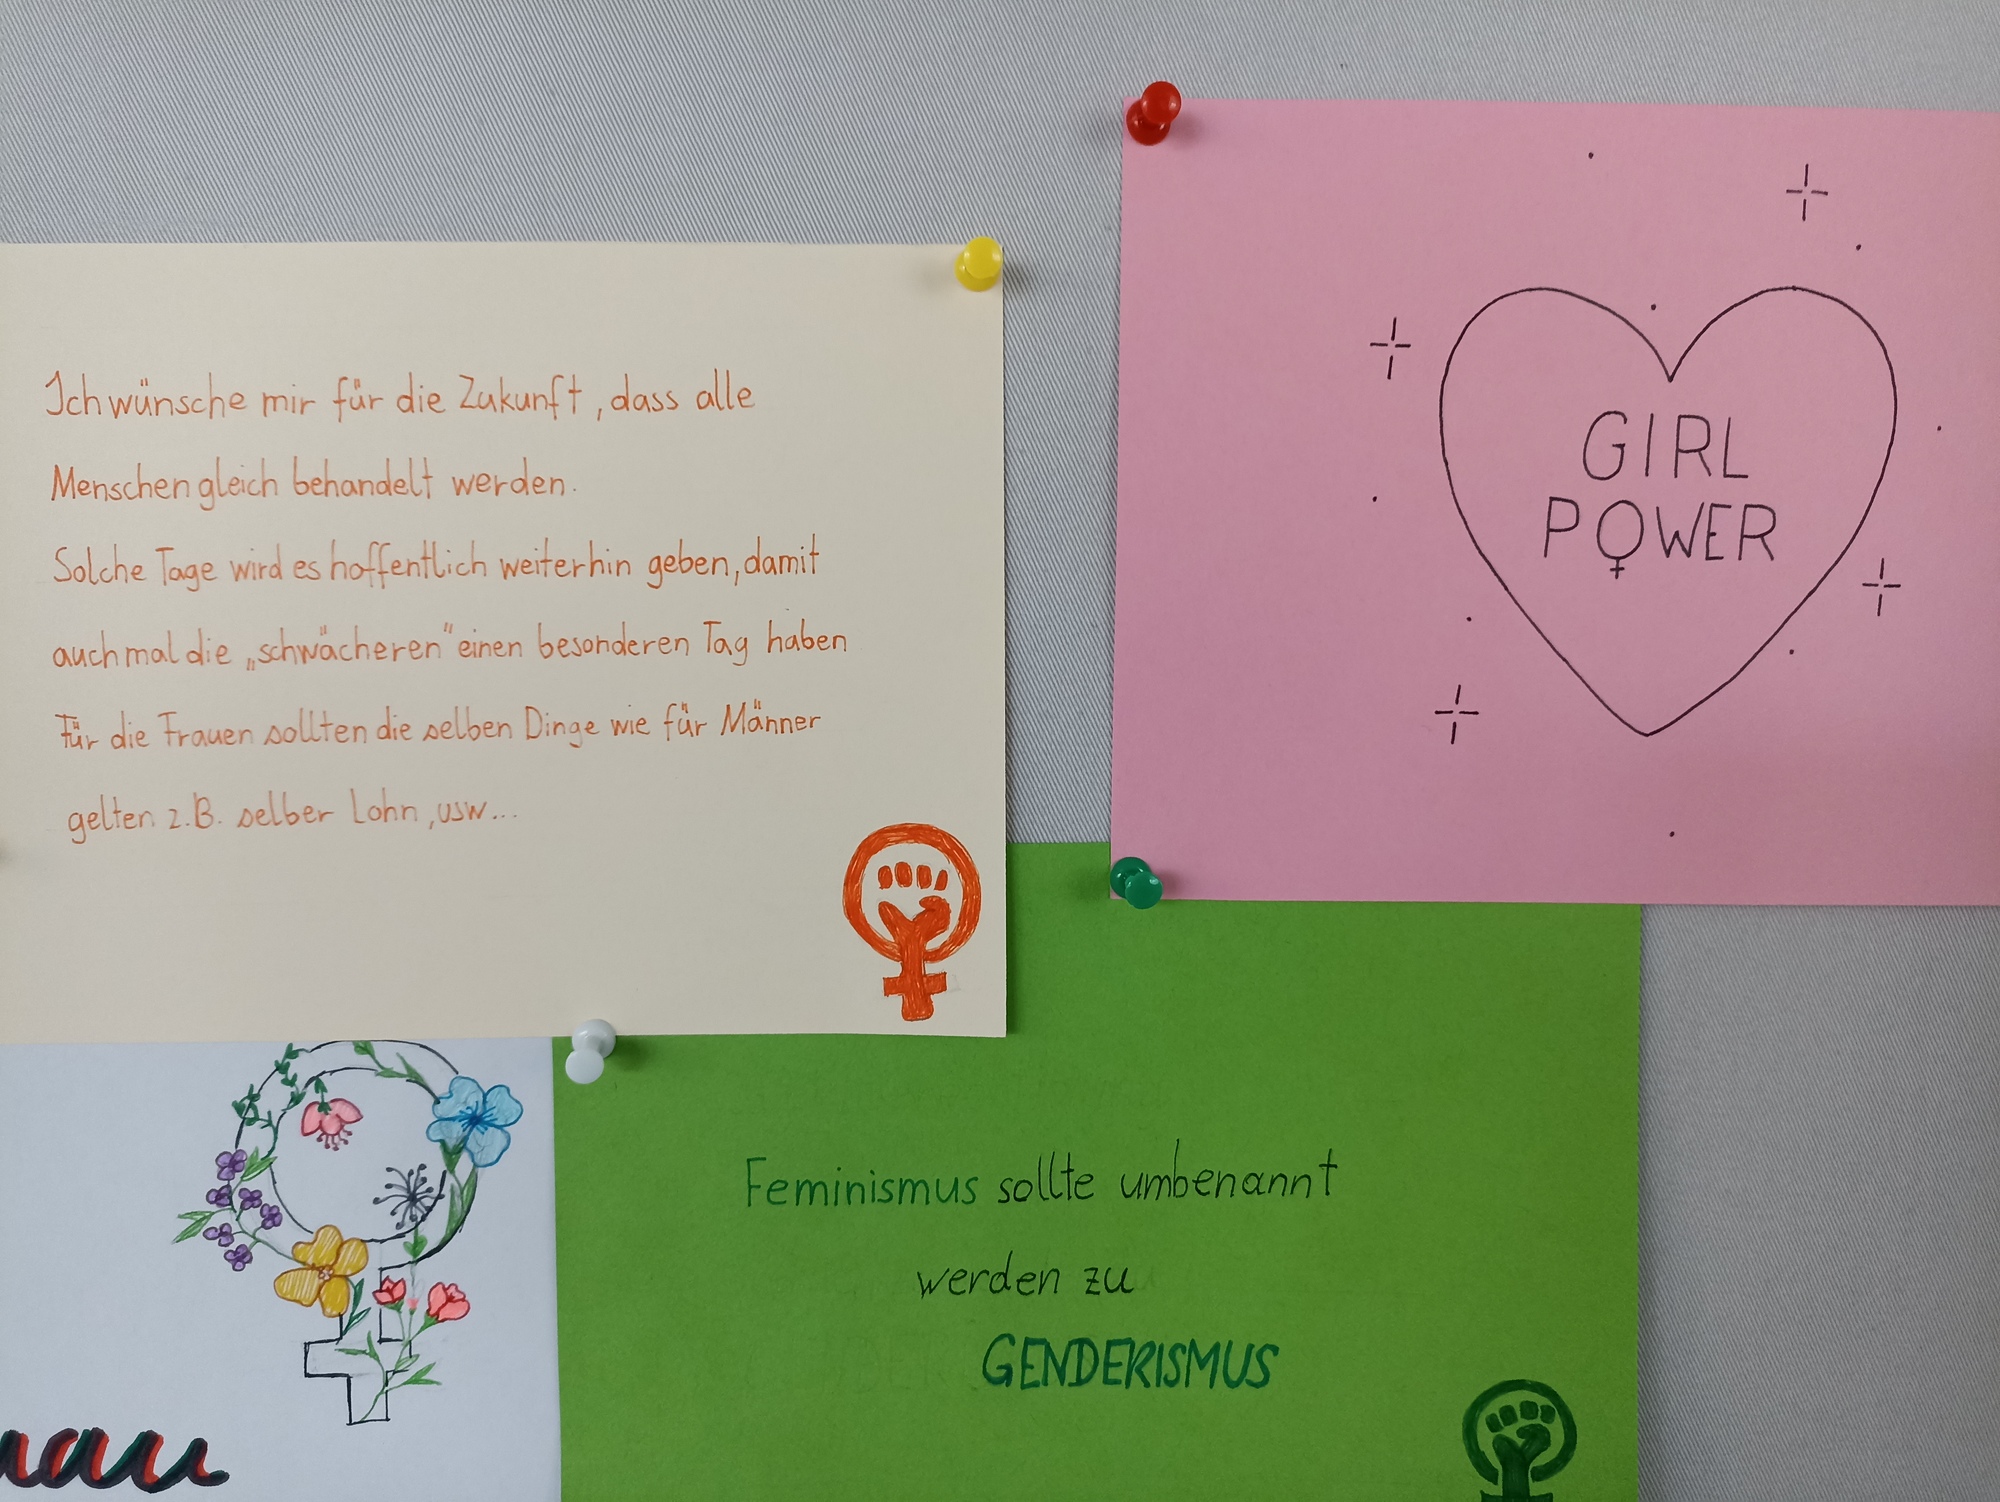 Ich wünsche mir für die Zukunft, dass alle
Menschen gleich behandelt werden.
Solche Tage wird es hoffentlich weiterhin geben, damit
auch mal die „schwächeren“ einen besonderen Tag haben
Für die Frauen sollten die selben Dinge wie für Männer
gelten z.B. selber Lohn, usw...
GIRL
POWER
Feminismus sollte umbenannt
werden zu
GENDERISMUS